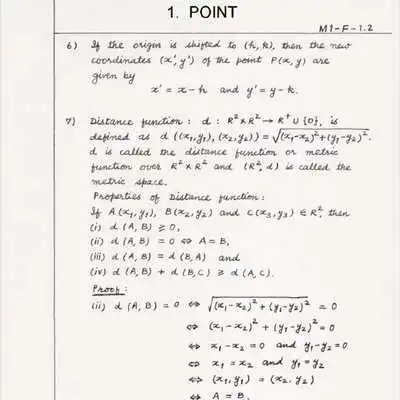 1. POINT
M1-F-1.2
6) If the origin is shifted to (h, k), then the new
coordinates (x', y') of the point P(x, y) are
given by
x' = x - h and y' = y - k.
7) Distance function : d : R² × R² → R⁺ ∪ {0}, is
defined as d ((x₁, y₁), (x₂, y₂)) = √(x₁-x₂)²+(y₁-y₂)².
d is called the distance function or metric
function over R² × R² and (R², d) is called the
metric space.
Properties of Distance function :
If A(x₁, y₁), B(x₂, y₂) and C(x₃, y₃) ∈ R², then
(i) d (A, B) ≥ 0,
(ii) d (A, B) = 0 ⇔ A = B,
(iii) d (A, B) = d (B, A) and
(iv) d (A, B) + d (B, C) ≥ d (A, C).
Proof :
(ii) d (A, B) = 0 ⇔ √(x₁-x₂)² + (y₁-y₂)² = 0
⇔ (x₁-x₂)² + (y₁-y₂)² = 0
⇔ x₁-x₂ = 0 and y₁-y₂ = 0
⇔ x₁ = x₂ and y₁ = y₂
⇔ (x₁, y₁) = (x₂, y₂)
⇔ A = B.